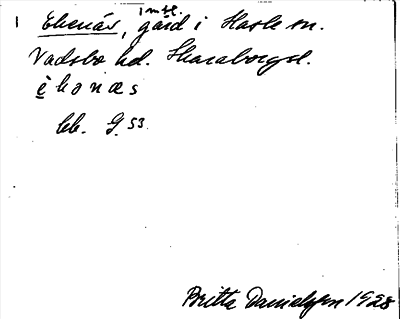 1 Ekenäs, 1 mtl. gård i Hassle sn.
Vadsbo hd. Skaraborgsl.
èkonæs
bb. G. 53
Britta Danielsson 1928